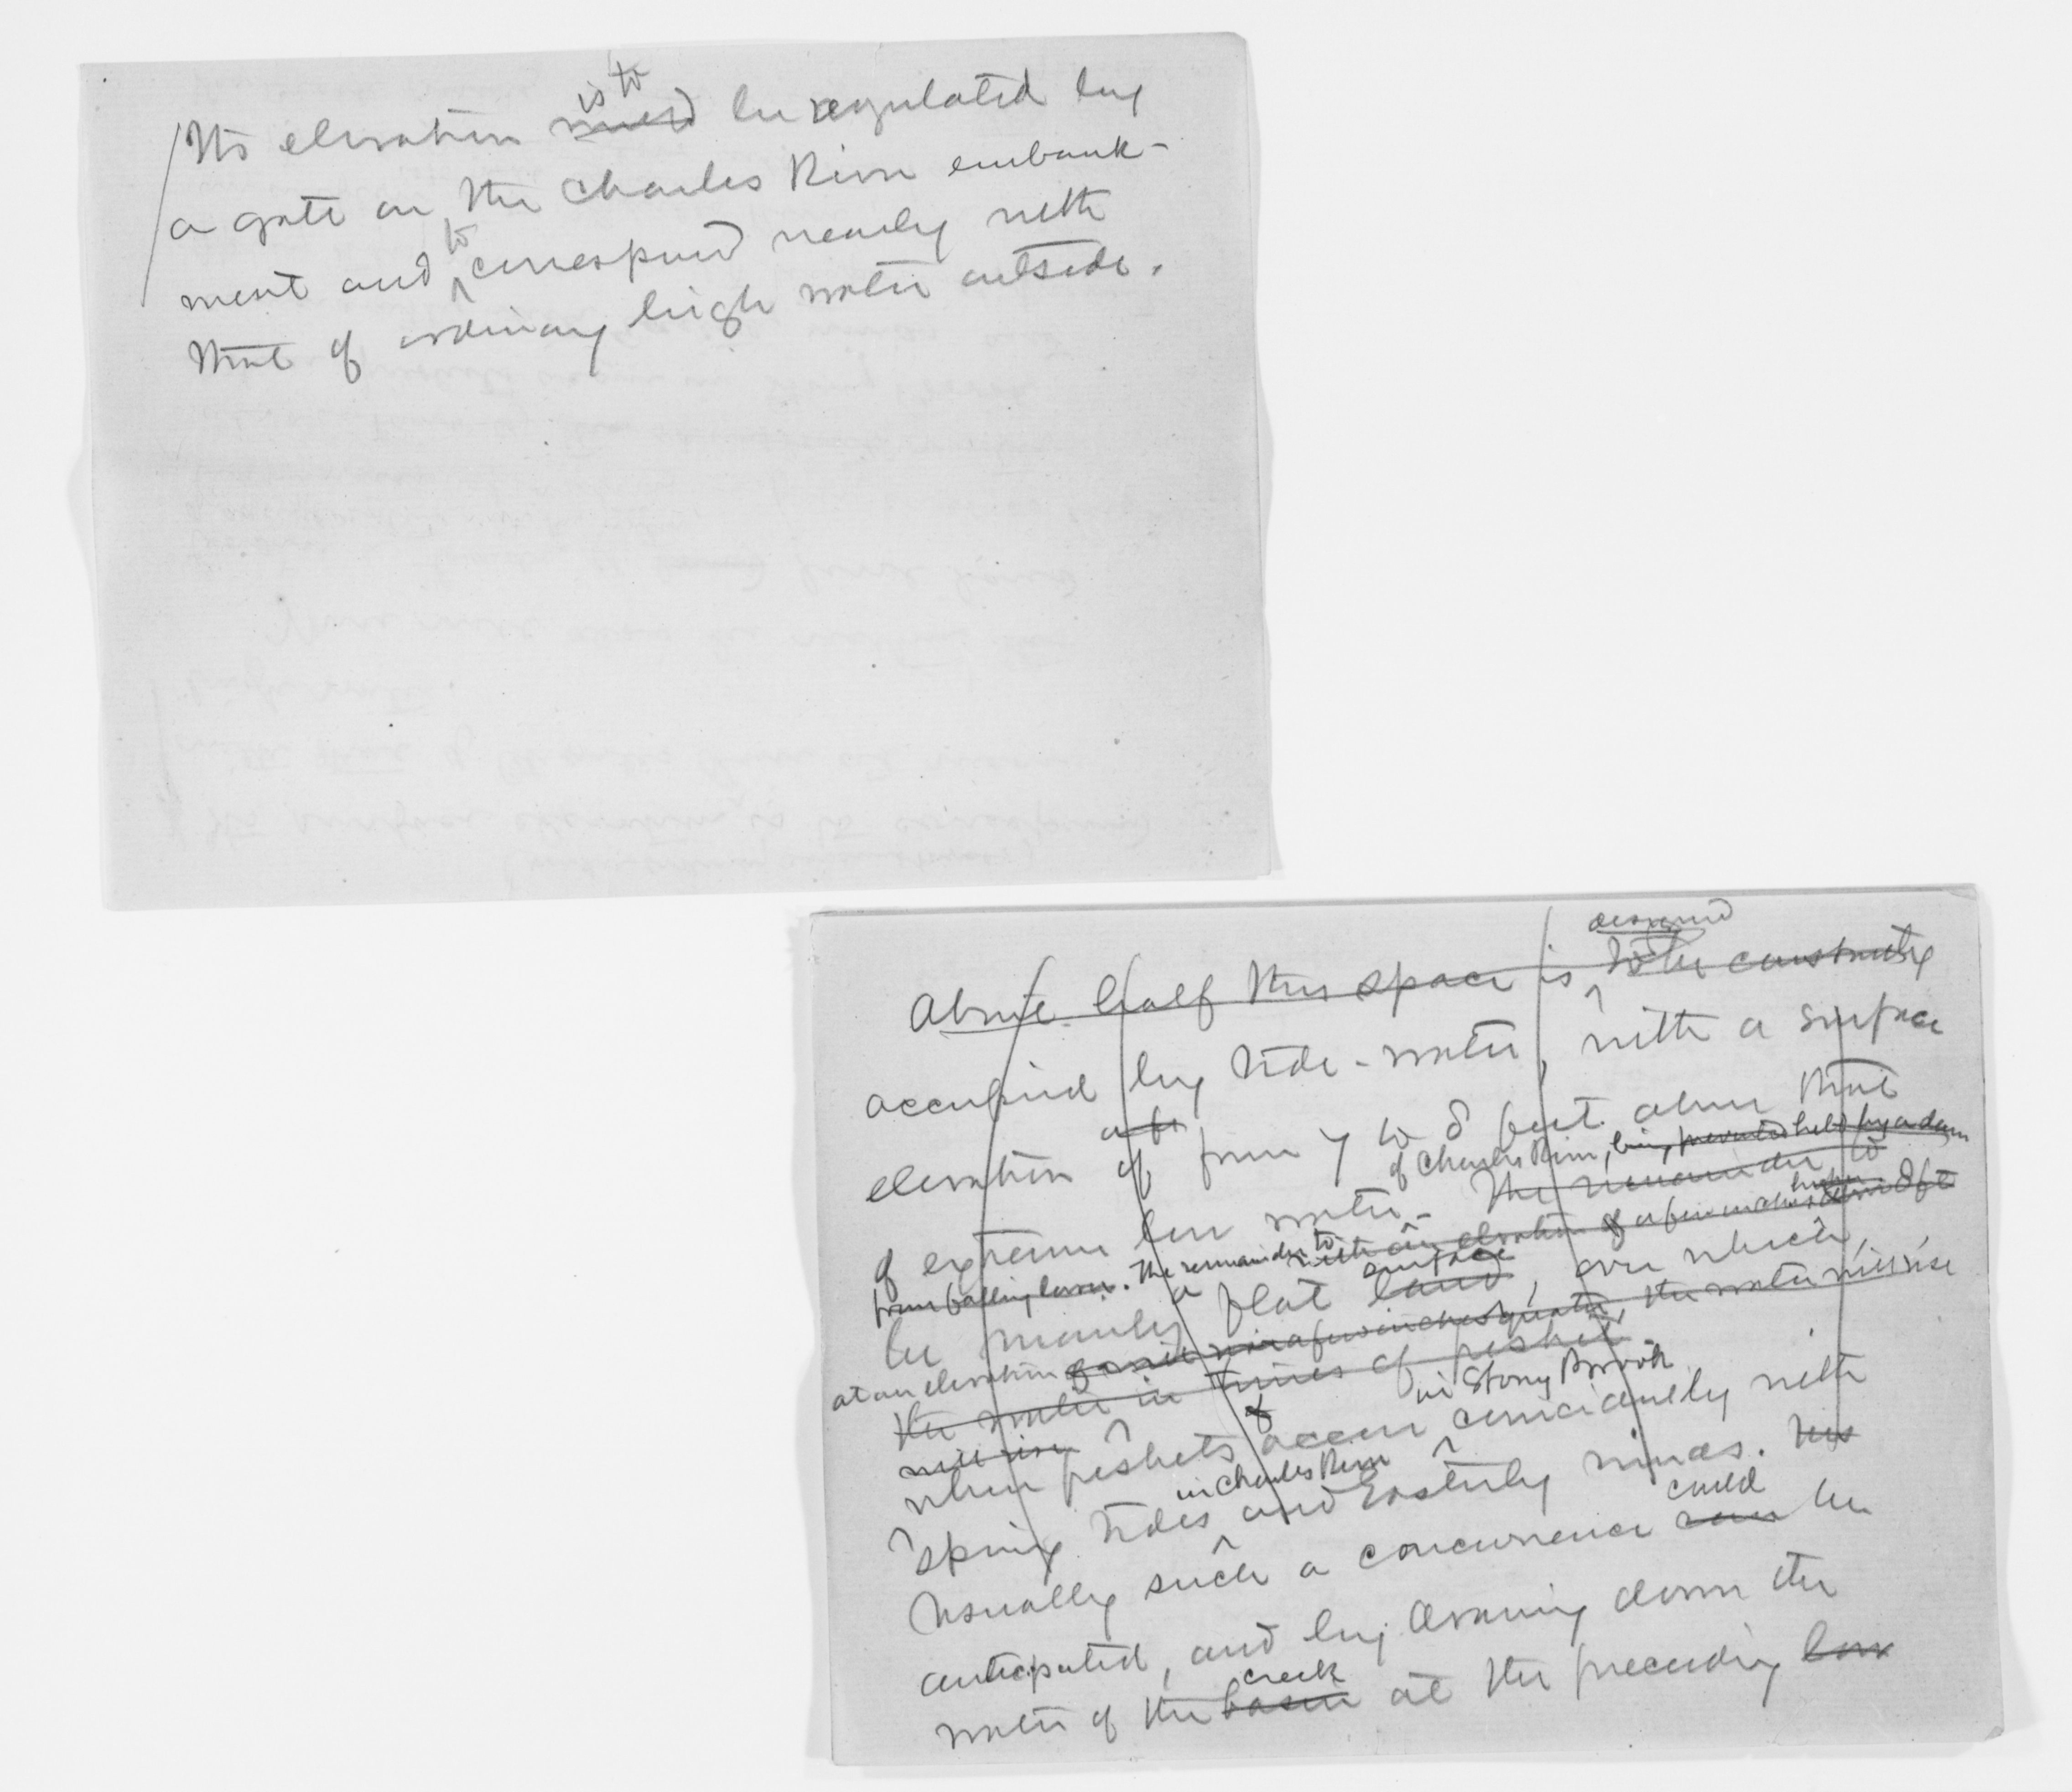 is to
Its elevation must be regulated by
a gate on the Charles River embank-
to
ment and correspond nearly with
that of ordinary high water outside.
designed
About half this space is to be constructed
occupied by tide-water, with a surface
elevation of from 7 to 8 feet above that
of Charles River, being prevented held by a dam
of extreme low water. The remainder to
from falling lower. The remainder to with an elevation of a few inches higher
surface
be mainly a flat land, over which,
at an elevation a few inches greater, the water will rise
the water in times of freshet.
will rise in Stony Brook
when freshets occur coincidently with
in Charles River
spring tides and Easterly winds.
could
Usually such a concurrence can be
anticipated, and by drawing down the
creek
water of the basin at the preceding low